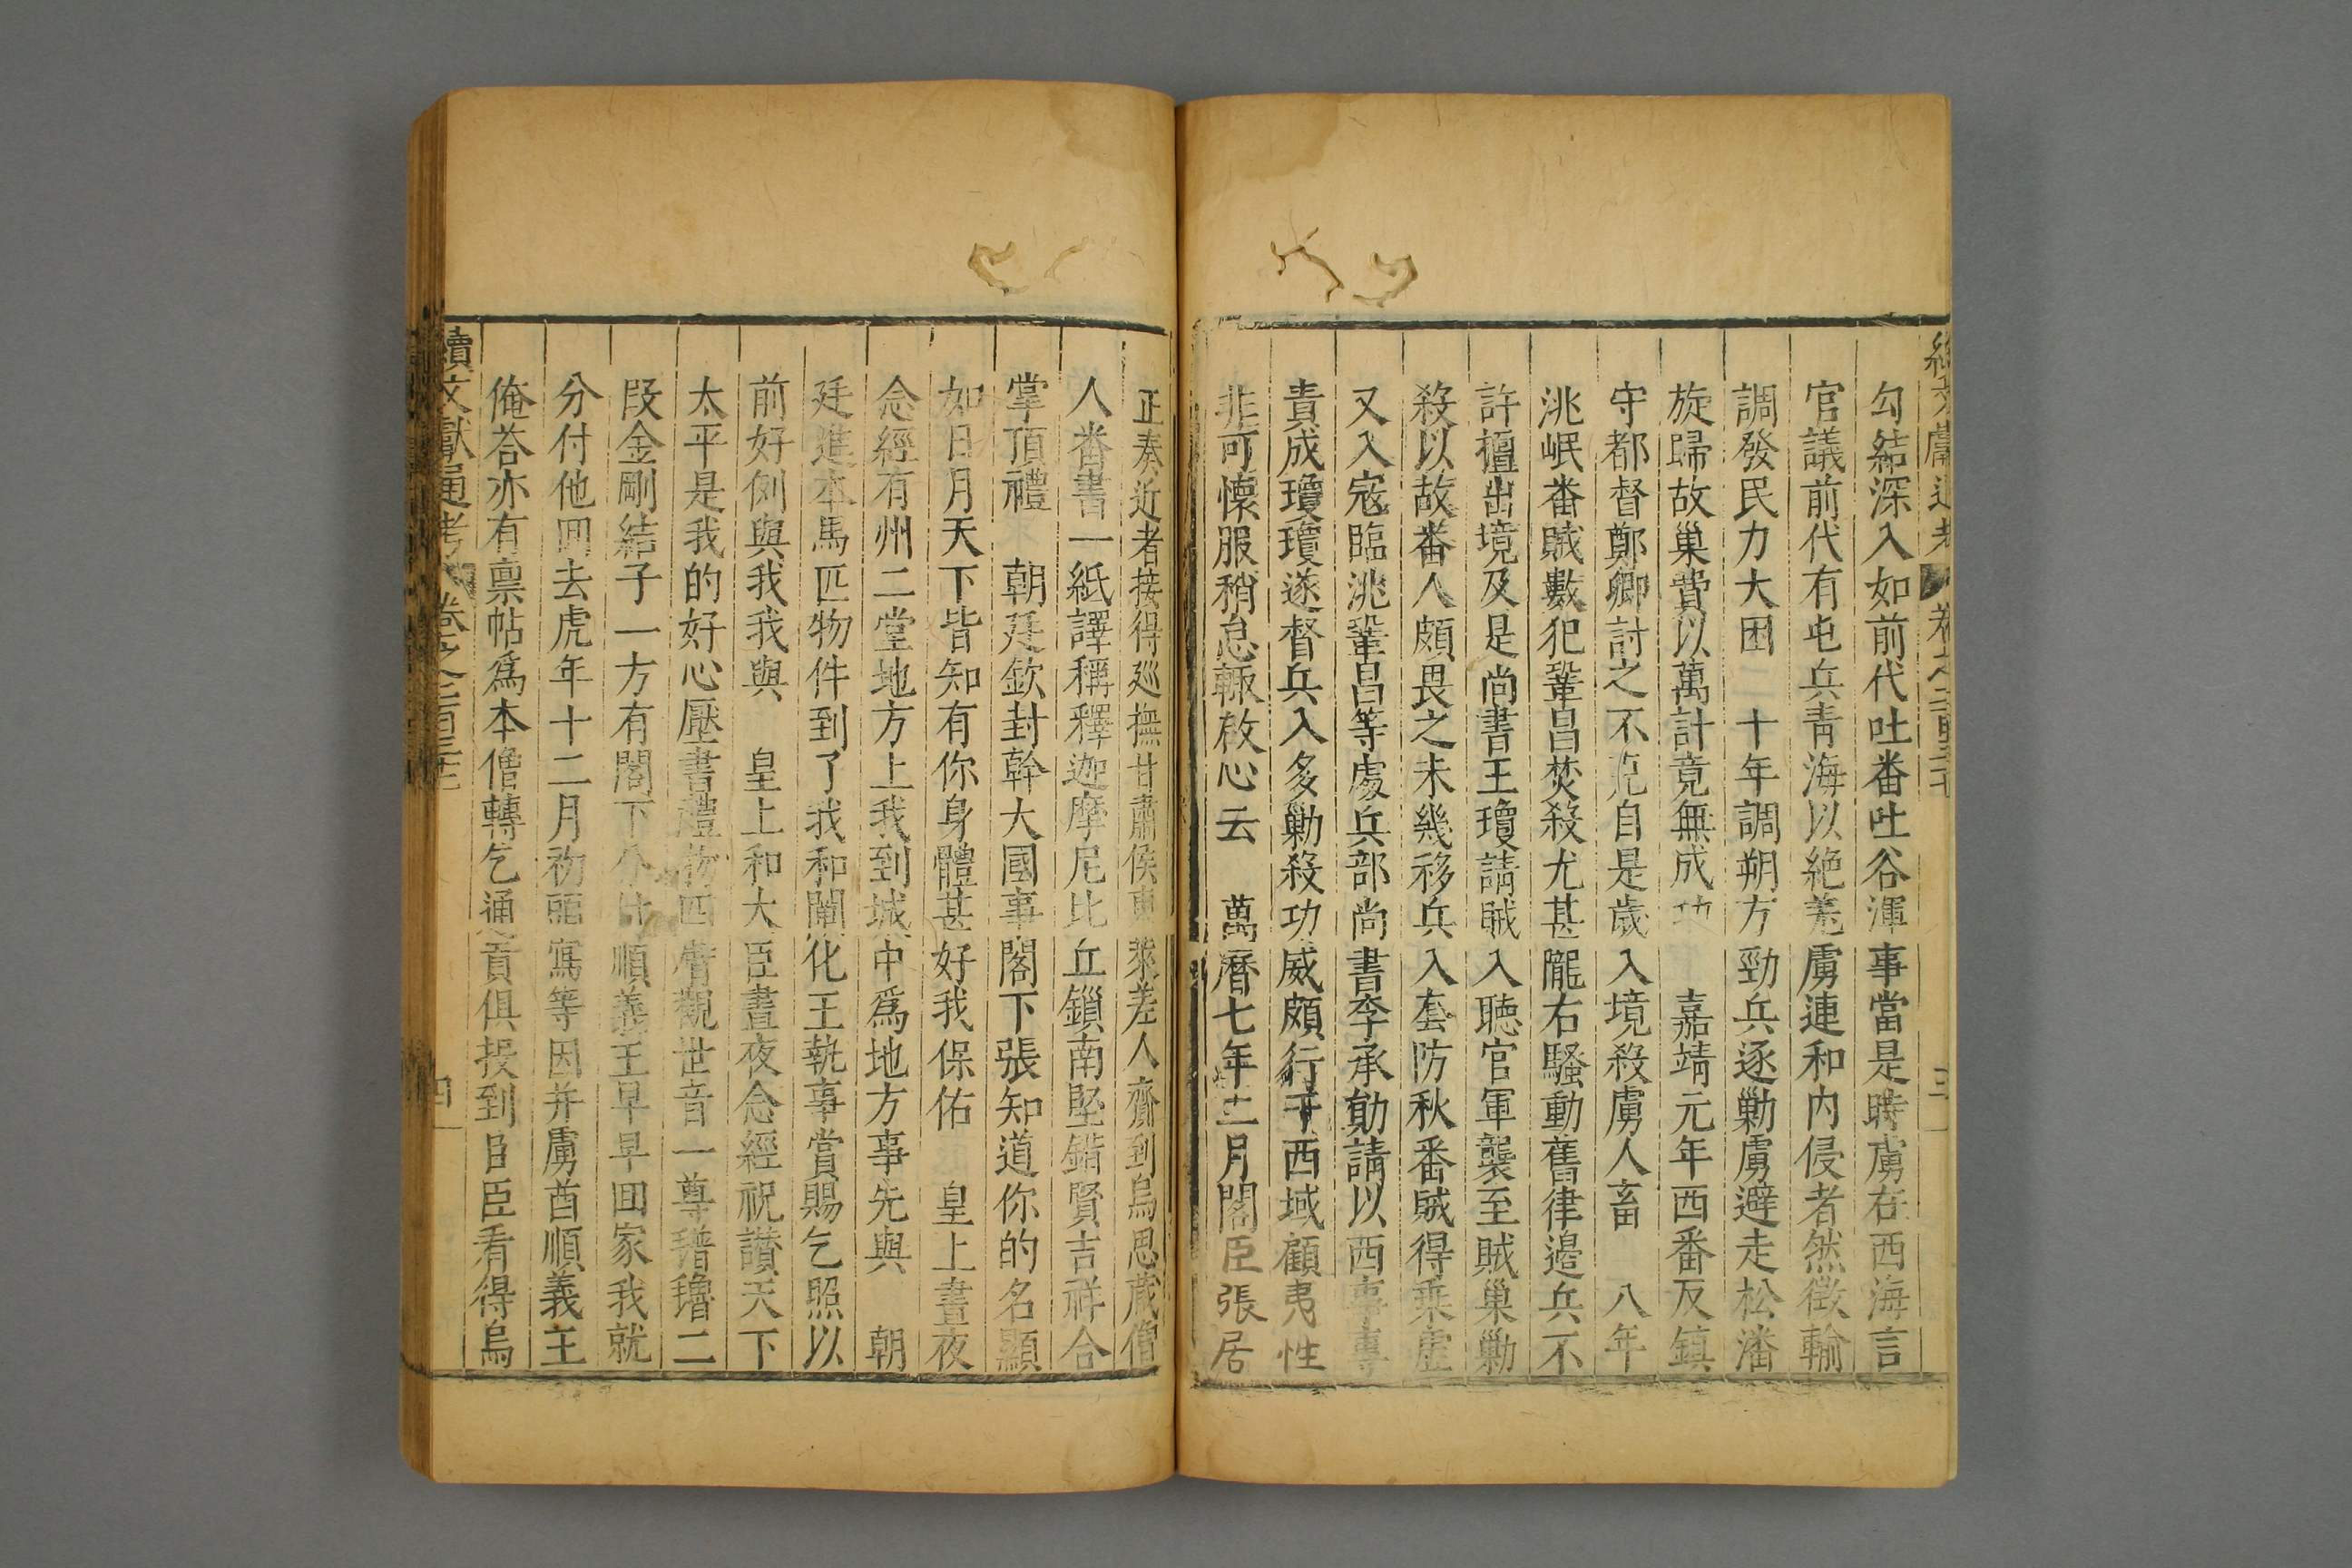 勾結深入如前代吐番吐谷渾事當是時虜在西海言
官議前代有屯兵青海以絶羌虜連和内侵者然徵輸
調發民力大困二十年調朔方勁兵逐勦虜避走松潘
旋歸故巢費以萬計竟無成功 嘉靖元年西番反鎮
守都督鄭卿討之不克自是歲入境殺虜人畜 八年
洮岷番賊數犯鞏昌焚殺尤甚隴右騷動舊律邉兵不
許擅出境及是尚書王瓊請賊入聽官軍襲至賊巢勦
殺以故番人頗畏之未幾移兵入套防秋番賊得乘虛
又入寇臨洮鞏昌等處兵部尚書李承勛請以西事專
責成瓊瓊遂督兵入多勦殺功威頗行于西域顧夷性
非可懷服稍怠輒啟心云 萬曆七年二月閣臣張居
正奏近者接得巡撫甘肅侯東萊差人齎到烏思藏僧
人番書一紙譯稱釋迦摩尼比丘鎖南堅錯賢吉祥合
掌頂禮 朝廷欽封幹大國事閣下張知道你的名顯
如日月天下皆知有你身體甚好我保佑 皇上晝夜
念經有州二堂地方上我到城中爲地方事先與 朝
廷進本馬匹物件到了我和闡化王執事賞賜乞照以
前好例與我我與 皇上和大臣晝夜念經祝讃天下
太平是我的好心壓書禮物四臂觀世音一尊氆氌二
段金剛結子一方有閣下分付順義王早早回家我就
分付他回去虎年十二月初頭寫等因并虜酋順義王
俺荅亦有禀帖爲本僧轉乞通貢俱投到臣臣看得烏
續文獻通考 卷之二百三十七 四